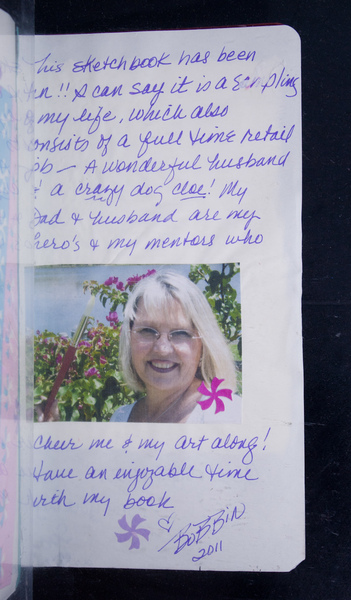 This sketchbook has been
fun!! I can say it is a sampling
of my life, which also
consists of a full time retail
job - A wonderful husband
& a crazy dog cloe! My
Dad & husband are my
hero's & my mentors who
cheer me & my art along!
Have an enjoyable time
with my book
♡ BOBBIN
2011